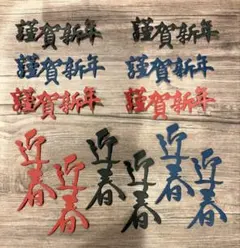 謹賀新年
謹賀新年
謹賀新年
謹賀新年
謹賀新年
謹賀新年
近春
近春
近春
近春
近春
近春